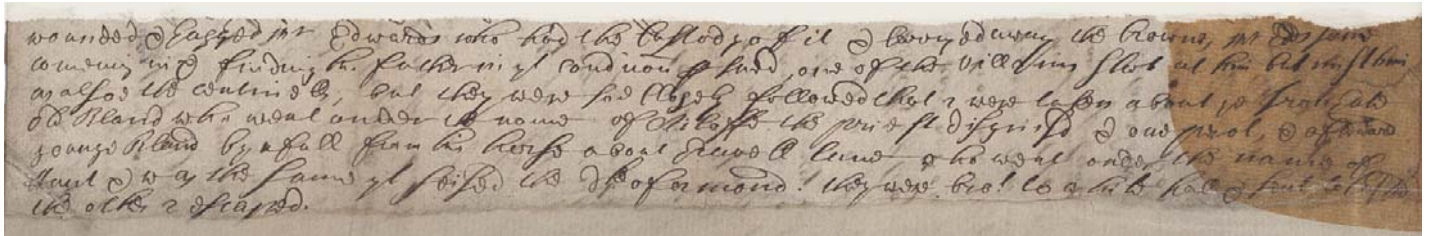 wounded & gagged mr Edwards who had the Custody of it & convey'd away the Crowne, mr Eds sone
comeing in & finding his father in yt condition, one of the Villains shot at him but mist him
as alsoe the centinells, but they were soe closely followed that 2 were taken about ye Irongate
old Bland who went under the name of the priest disguised & one perot, & afterward
younge Bland by a fall from his horse about lane who went under the name of
Hunt & was the same yt seised the D: of ormond: they were brot to white hall & sent to
the other 2 escaped.